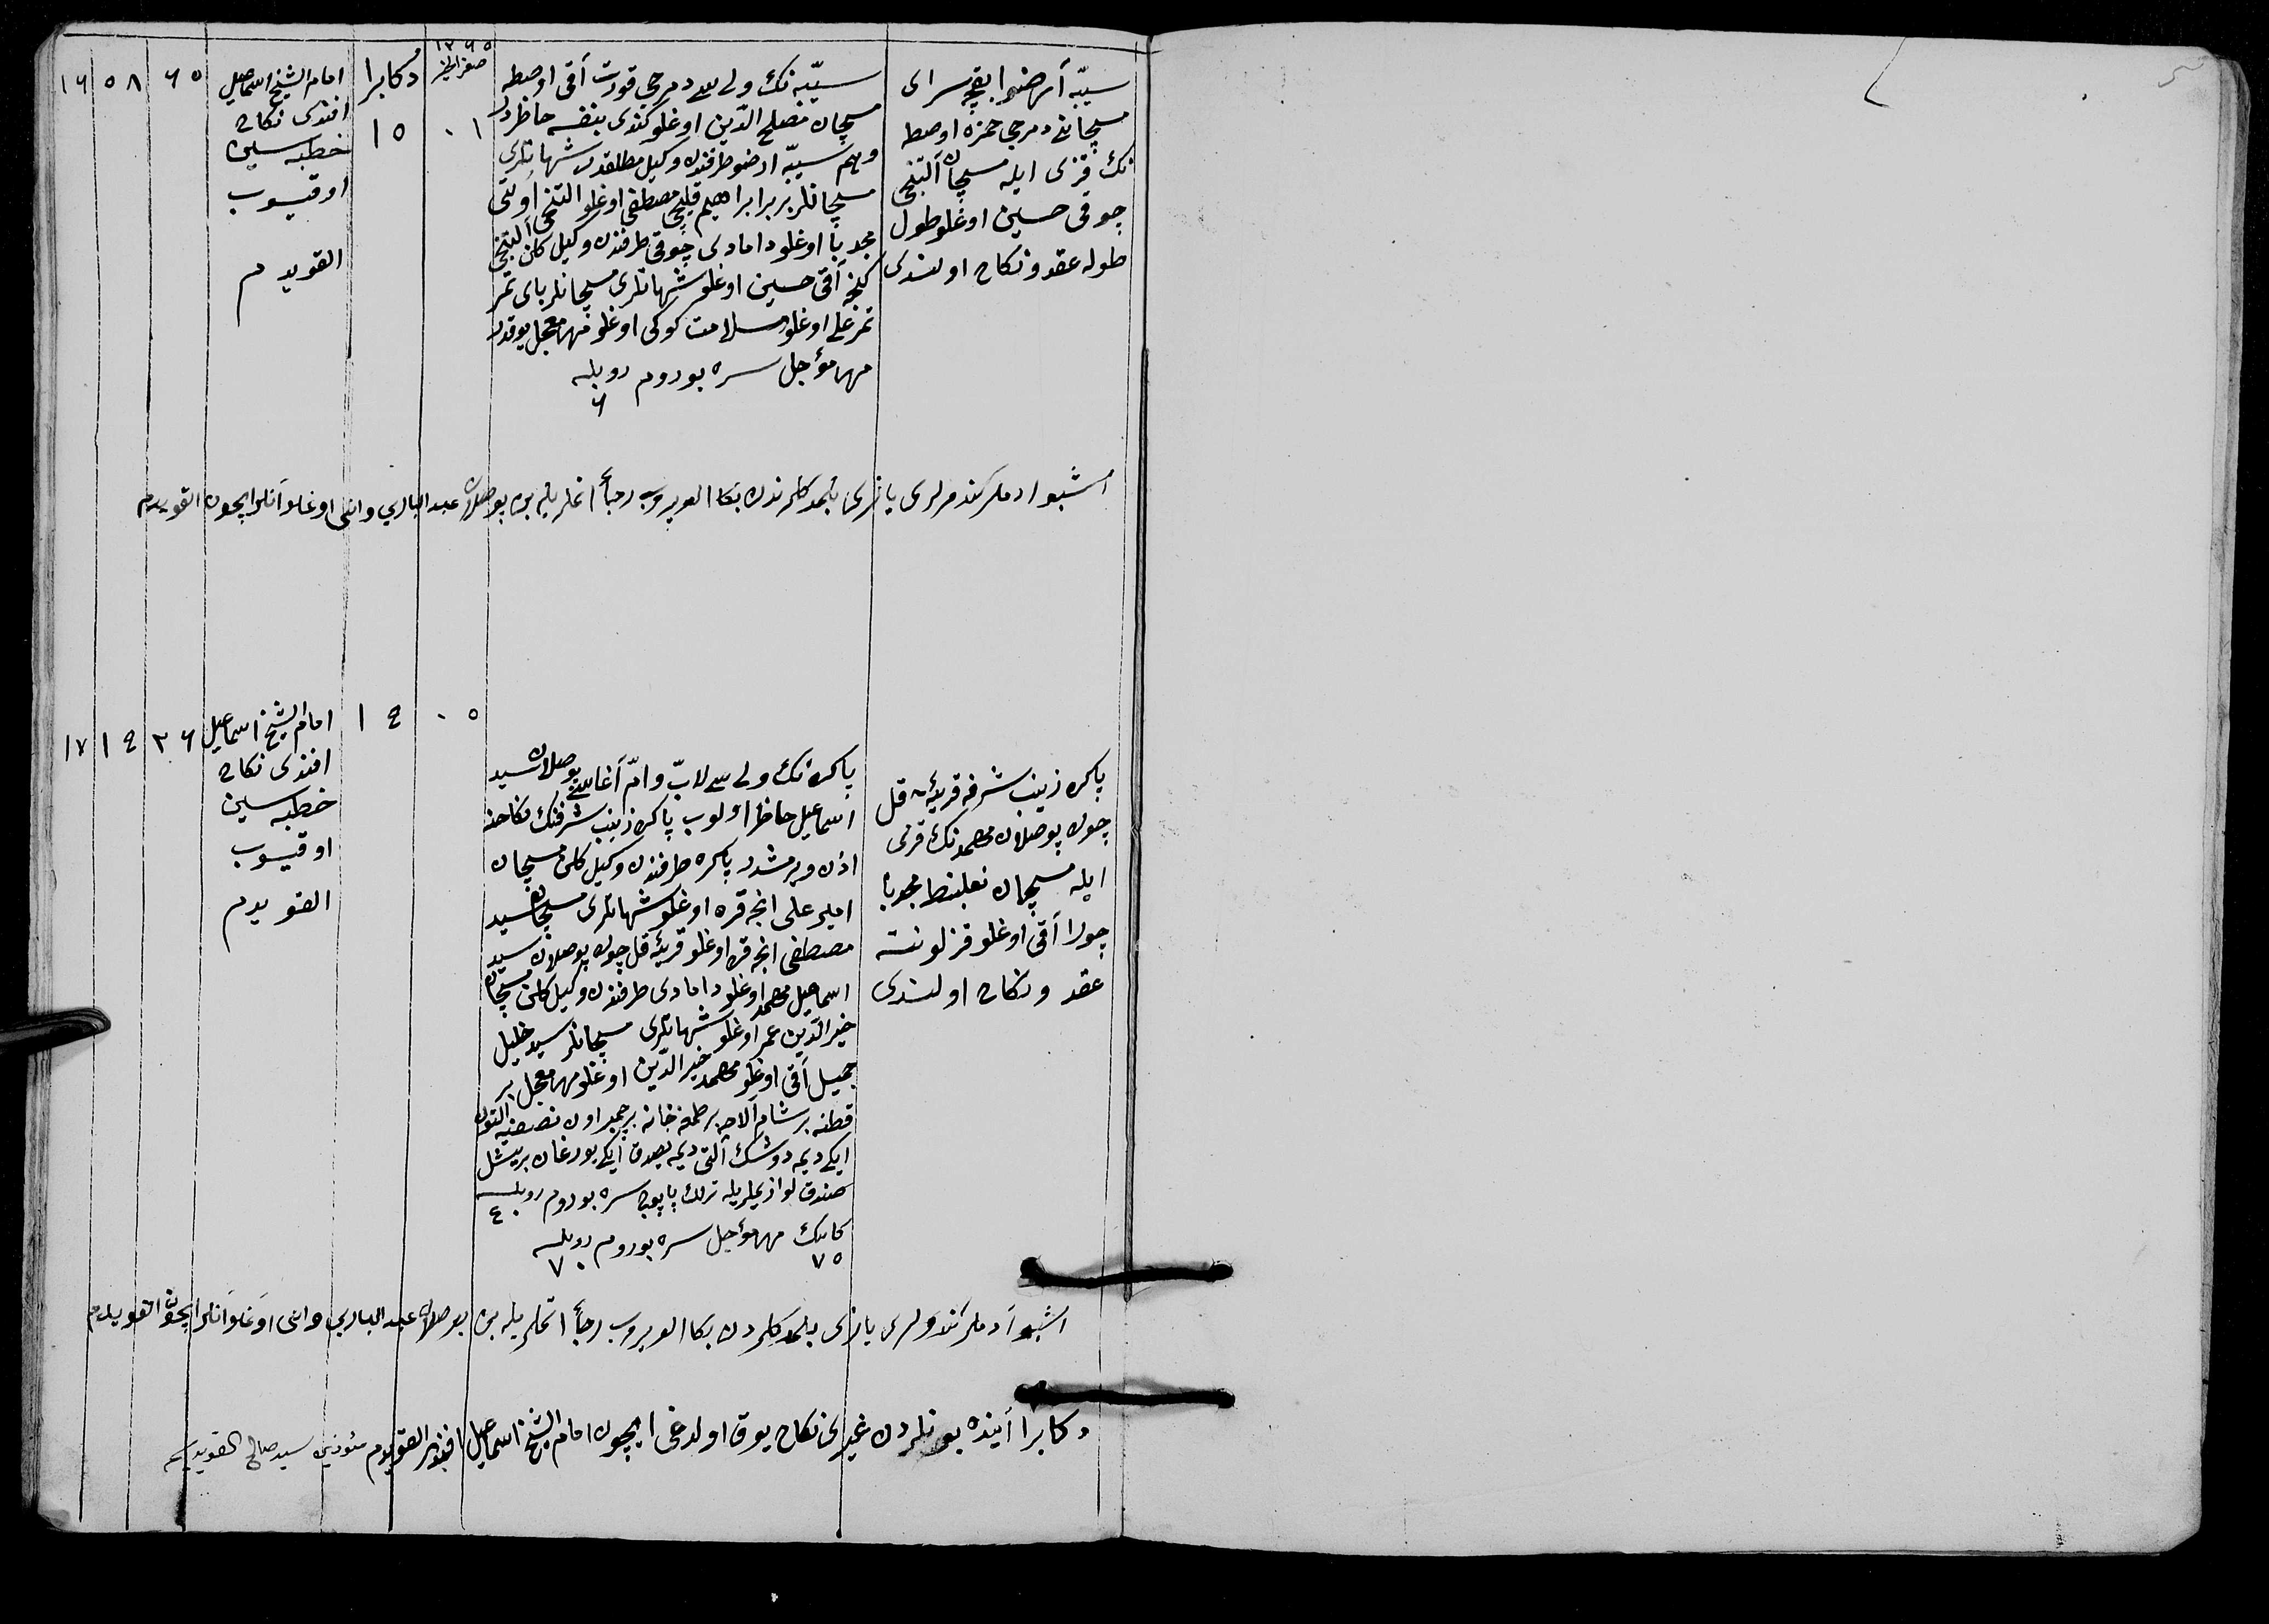 سيّبه آرضو ابقچه سراى
مسچانى دمرجى حمزه اوصطه
نڭ قزى ايله مسچان آلتنجى
چوقى حسين اوغلو طول
طوله عقد و نكاح اولندى
سيّبه نڭ ولى سى دمرجى قورت آقى اوصطه
مسچان مصلح الدّين اوغلو كندى بنفسه حاظردر
وهم سيّبه ارضو طرفندن وكيل مطلقدر شهاتلرى
مسچانلر بربر ابراهيم قليچ مصطفى اوغلو التنجى اولتى
مجديا اوغلو دامادى چوقى طرفندن وكيل كلن آلتنجى
كنجه آقى حسين اوغلو شهاتلرى مسچانلر باى تمر
تمر على اوغلو سلامت كوكى اوغلو مهر معجل يوقدر
مهر مؤجل سره بوروم روبله
۶
۱۲۶۵
صفر الخير
۰۱
دكابرا
۱۵
امام الشيخ اسماعيل
افندى نكاح
خطبه سين
اوقيوب
القويدم
۶۵
۵۸
۱۶
اشبو ادملر كندولرى يازى بلمدكلرندن بكا القويروب رجاأ اتملريله بن بوصلان عبد البارى واتى اوغلو آنلر ايچون القويدم
باكره زينب شرفه قريهٔ قل
چورن بوصلان محمدنڭ قزى
ايله مسچان نعلبند مجديا
چورا آقى اوغلو قزلونته
عقد و نكاح اولندى
باكره نڭ ولى سى لاب و امّ آغاسى بوصلان سيد
اسماعيل حاظر اولوب باكره زينب شرفنڭ نكاحنه
اذن ويرمشدر باكره طرفندن وكيل كلن مسچان
امير على انجه قره اوغلو شهاتلرى مسچان سيد
مصطفى انجه قره اوغلو قريهٔ قل چورن بوصلان سيد
اسماعيل محمد اوغلو دامادى طرفندن وكيل كلن مسچان
خير الدّين عمر اوغلو شهاتلرى مسچانلر سيد خليل
جميل آقى اوغلو محمد خير الدّين اوغلو مهر معجل بر
قطنه بر شام آلاجه بر طمغه خانه بر چمبر اون نصفيه التون
ايكى ديمه دوشك آلتى ديمه يصدق ايكى يورغان بر يشل
صندق لوازيملريله ترلك پاپوچ سره بوروم روبله
۴۰
كابيك مهر مؤجل سره بوروم روبله
۷۵ ۷۰
۰۵
۱٤
امام الشيخ اسماعيل
افندى نكاح
خطبه سين
اوقيوب
القويدم
۲۶
۱٤
۱۷
اشبو آدملر كندولرى يازى بلمدكلردن بكا القويروب رجاأ اتملريله بن بوصلان عبد البارى واتى اوغلو آنلر ايچون القويدم
دكابرا آينده بونلردن غيرى نكاح يوق اولدغى ايچون امام الشيخ اسماعيل افندى القويدم مؤذين سيد صالح القويديم